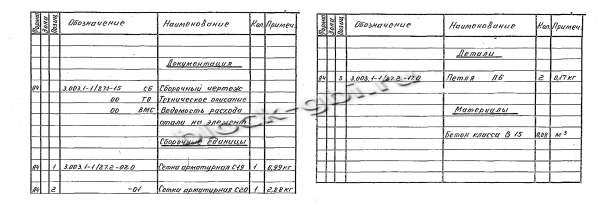 Формат Зона Позиц. Обозначение Наименование Кол. Примеч.
Документация
А4 3.003.1-1/87.1-15 СБ Сборочный чертеж
00 ТО Техническое описание
00 ВМС Ведомость расхода
стали на элемент
Сборочные единицы
А4 1 3.003.1-1/87.2-020 Сетка арматурная С19 1 6,99 кг
А4 2 -01 Сетка арматурная С20 1 2,28 кг
Формат Зона Позиц. Обозначение Наименование Кол. Примеч.
Детали
А4 3 3.003.1-1/87.2-170 Петля П6 2 0,17 кг
Материалы
Бетон класса В 15 м³
block-gbi.ru